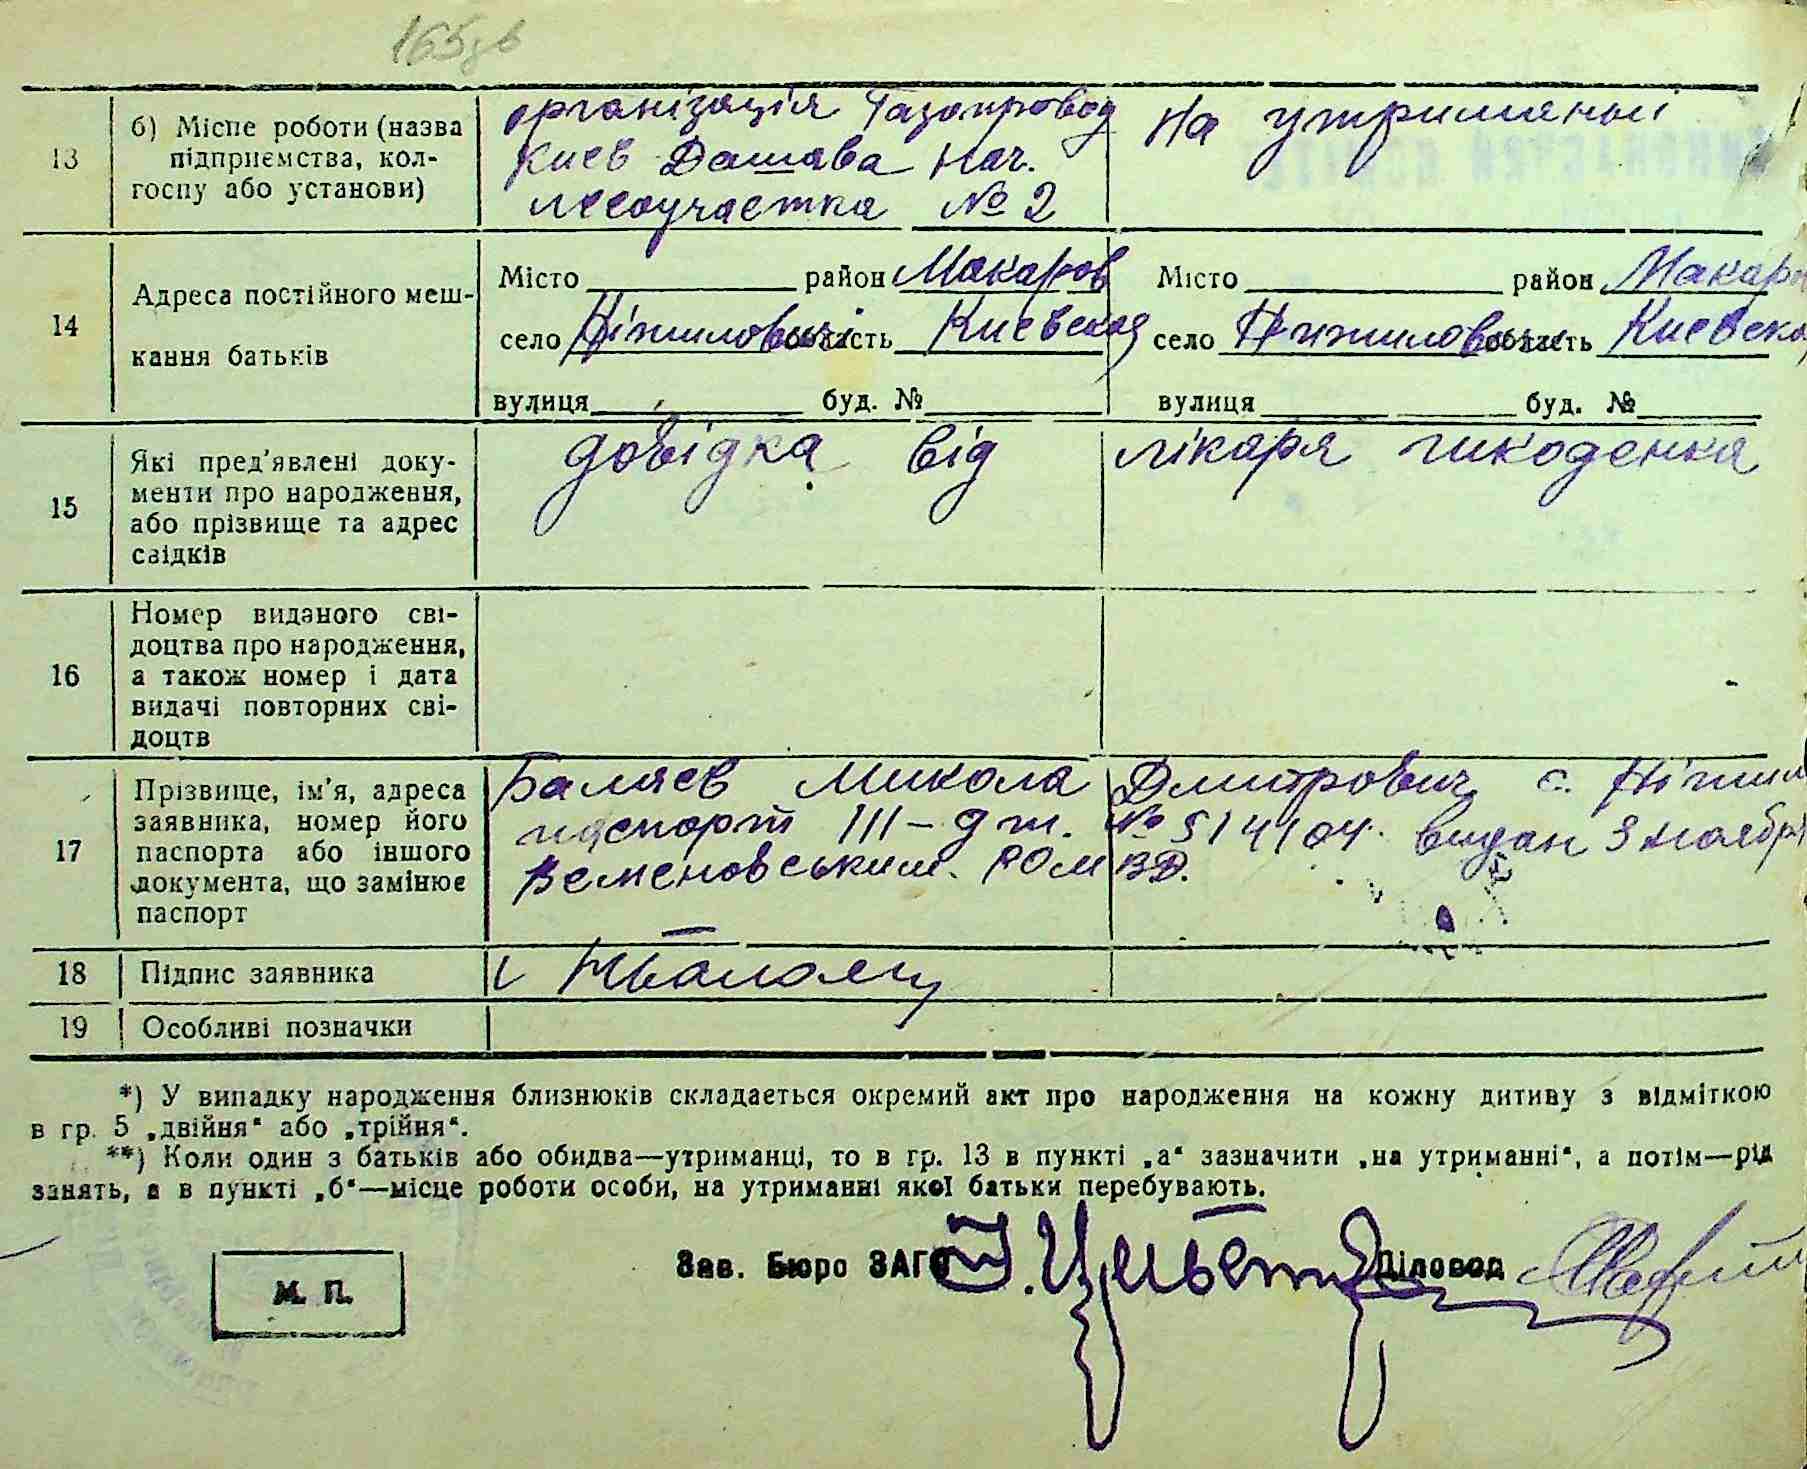 165зв
13 б) Місце роботи (назва підприємства, колгоспу або установи)
організація Газопровод
Киев Дашава нач.
лесоучастка № 2
На утриманьні
14 Адреса постійного мешкання батьків
Місто район Макаров
село Ніжиловичі область Киевская
вулиця буд. №
Місто район Макаров
село Нижиловичи область Киевская
вулиця буд. №
15 Які пред'явлені документи про народження, або прізвище та адрес свідків
довідка від лікаря
16 Номер виданого свідоцтва про народження, а також номер і дата видачі повторних свідоцтв
17 Прізвище, ім'я, адреса заявника, номер його паспорта або іншого документа, що замінює паспорт
Баляев Микола Дмитрович с. Ніжил
паспорт III-дт. № 514104 видан 3 ноябр
18 Підпис заявника
19 Особливі позначки
*) У випадку народження близнюків складається окремий акт про народження на кожну дитину з відміткою
в гр. 5 „двійня“ або „трійня“.
**) Коли один з батьків або обидва—утриманці, то в гр. 13 в пункті „а“ зазначити „на утриманні“, а потім—рід
занять, а в пункті „б“—місце роботи особи, на утриманні якої батьки перебувають.
Зав. Бюро ЗАГС Діловод
М. П.